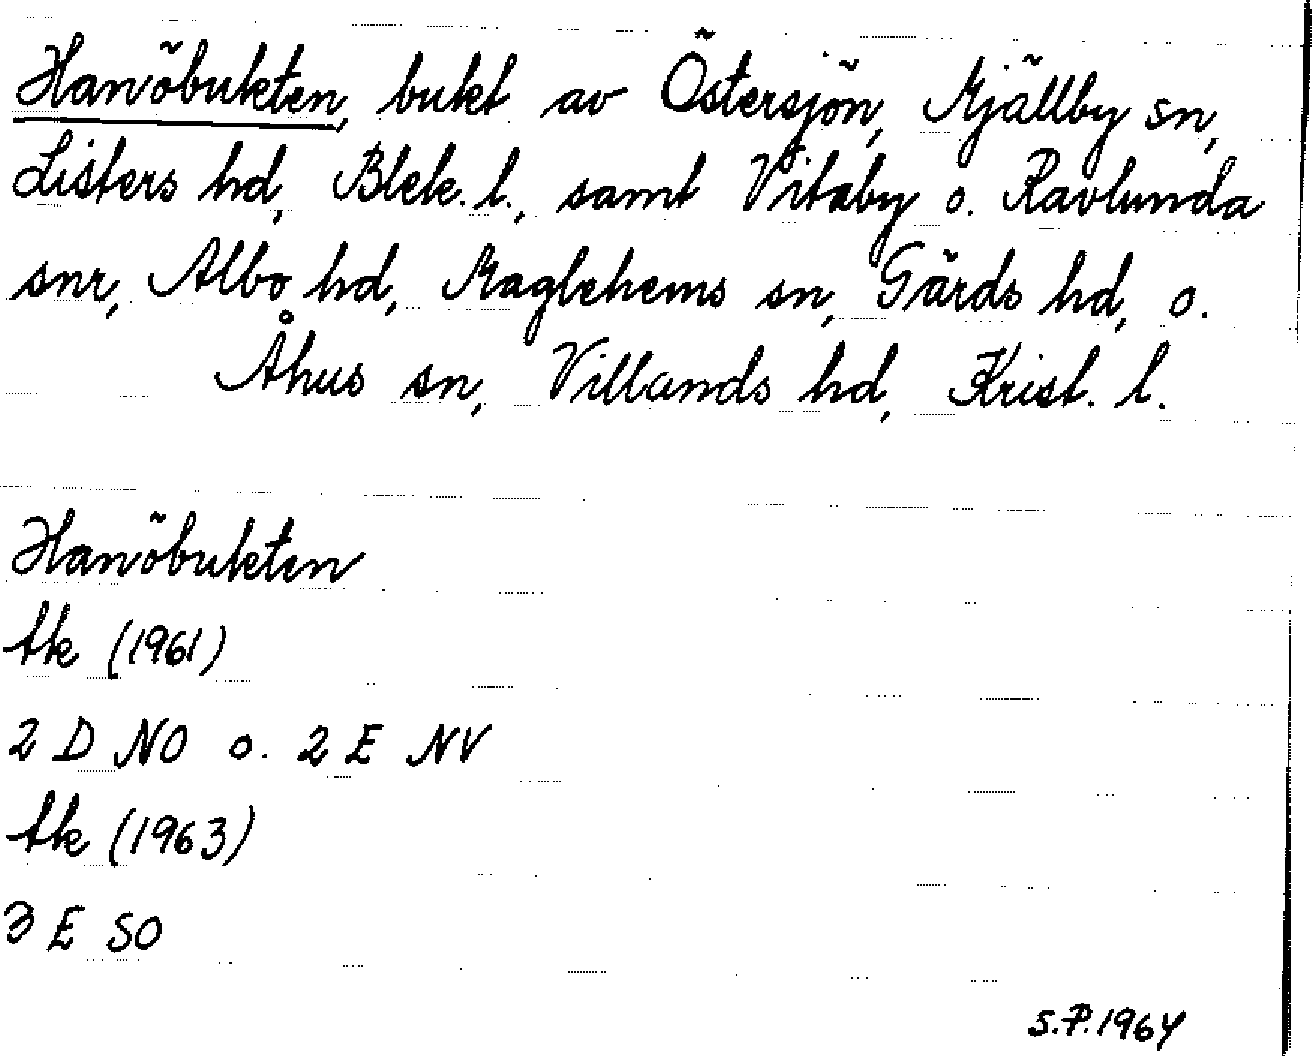 Hanöbukten, bukt av Östersjön, Mjällby sn,
Listers hd, Blek. l., samt Vitaby o. Ravlunda
snr, Albo hd, Maglehems sn, Gärds hd, o.
Åhus sn, Villands hd, Krist. l.
Hanöbukten
tk (1961)
2 D NO o. 2 E NV
tk (1963)
3 E SO
S.P. 1964